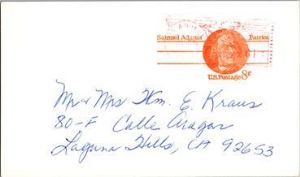 Samuel Adams Patriot
U.S. Postage 8¢
Mr & Mrs Wm. E. Kraus
80-F Calle Aragon
Laguna Hills, CA 92653